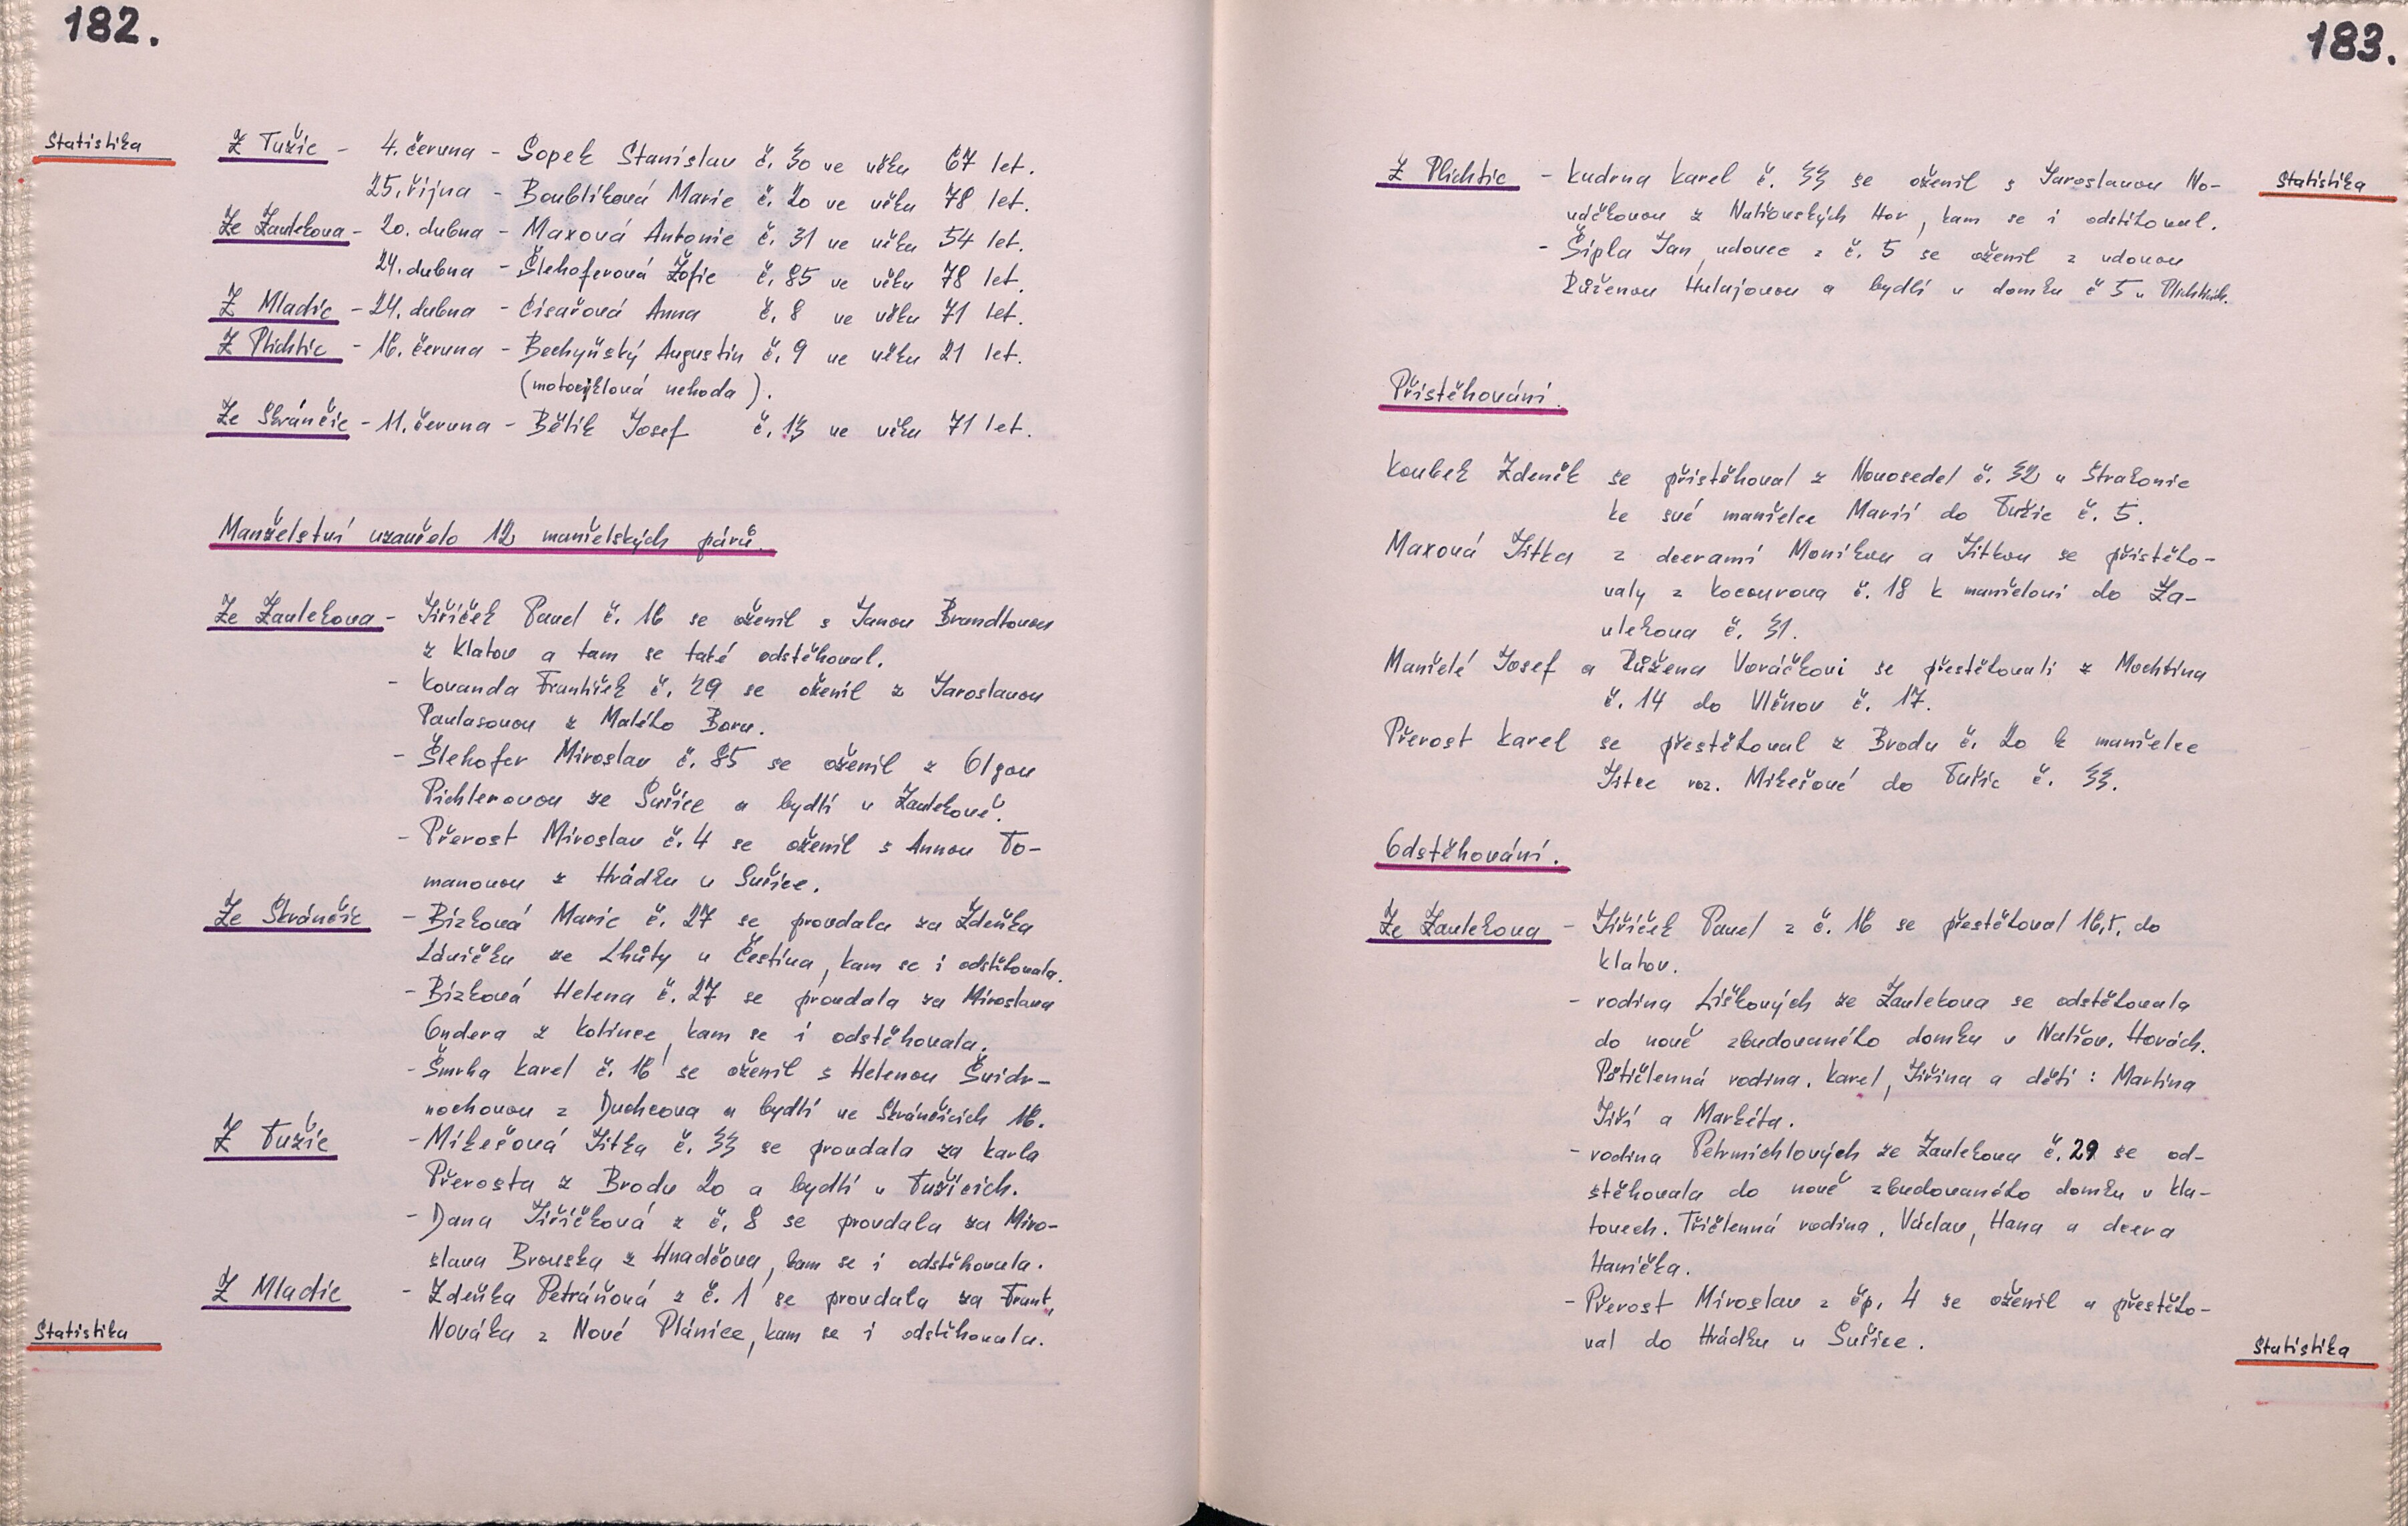 182.
Statistika
Z Tužic - 4. června - Sopek Stanislav č. 30 ve věku 67 let.
25. října - Boublíková Marie č. 20 ve věku 78 let.
Ze Zavlekova - 20. dubna - Maxová Antonie č. 31 ve věku 54 let.
24. dubna - Šlehoferová Žofie č. 85 ve věku 78 let.
Z Mladic - 24. dubna - Císařová Anna č. 8 ve věku 71 let.
Z Plichtic - 16. června - Bechyňský Augustin č. 9 ve věku 21 let.
(motocyklová nehoda).
Ze Skránčic - 11. června - Bělík Josef č. 13 ve věku 71 let.
Manželství uzavřelo 12 manželských párů.
Ze Zavlekova - Jiříček Pavel č. 16 se oženil s Janou Brandtovou
z Klatov a tam se také odstěhoval.
- Kovanda František č. 29 se oženil z Jaroslavou
Paulasovou z Malého Boru.
- Šlehofer Miroslav č. 85 se oženil z Olgou
Pichlerovou ze Sušice a bydlí v Zavlekově.
- Přerost Miroslav č. 4 se oženil s Annou To-
manovou z Hrádku u Sušice.
Ze Skránčic - Bízková Marie č. 27 se provdala za Zdeňka
Lávičku ze Lhůty u Čestína, kam se i odstěhovala.
- Bízková Helena č. 27 se provdala za Miroslava
Ondera z Kolince, kam se i odstěhovala.
- Šmrha Karel č. 16 se oženil s Helenou Švidr-
nochovou z Duchcova a bydlí ve Skránčicích 16.
Z Tužic - Mikešová Jitka č. 33 se provdala za Karla
Přerosta z Brodu 20 a bydlí v Tužicích.
- Dana Jiříčková z č. 8 se provdala za Miro-
slava Brouska z Hnačova, kam se i odstěhovala.
Z Mladic - Zdeňka Petráňová z č. 1 se provdala za Frant.
Nováka z Nové Plánice, kam se i odstěhovala.
Statistika
183.
Statistika
Z Plichtic - Kudrna Karel č. 33 se oženil s Jaroslavou No-
váčkovou z Nalžovských Hor, kam se i odstěhoval.
- Šipla Jan, vdovec z č. 5 se oženil z vdovou
Růženou Hulajovou a bydlí v domku č 5 v Plichticích.
Přistěhování.
Koubek Zdeněk se přistěhoval z Novosedel č. 32 u Strakonic
ke své manželce Marii do Tužic č. 5.
Maxová Jitka z dcerami Monikou a Jitkou se přistěho-
valy z Kocourova č. 18 k manželovi do Za-
vlekova č. 31.
Manželé Josef a Růžena Voráčkovi se přestěhovali z Mochtína
č. 14 do Vlčnov č. 17.
Přerost Karel se přestěhoval z Brodu č. 20 k manželce
Jitce roz. Mikešové do Tužic č. 33.
Odstěhování.
Ze Zavlekova - Jiříček Pavel z č. 16 se přestěhoval 16,5. do
Klatov.
- rodina Liškových ze Zavlekova se odstěhovala
do nově zbudovaného domku v Nalžov. Horách.
Pětičlenná rodina. Karel, Jiřina a děti: Martina
Jiří a Markéta.
- rodina Petrmichlových ze Zavlekova č. 29 se od-
stěhovala do nově zbudovaného domku v Kla-
tovech. Tříčlenná rodina. Václav, Hana a dcera
Hanička.
- Přerost Miroslav z čp. 4 se oženil a přestěho-
val do Hrádku u Sušice.
Statistika